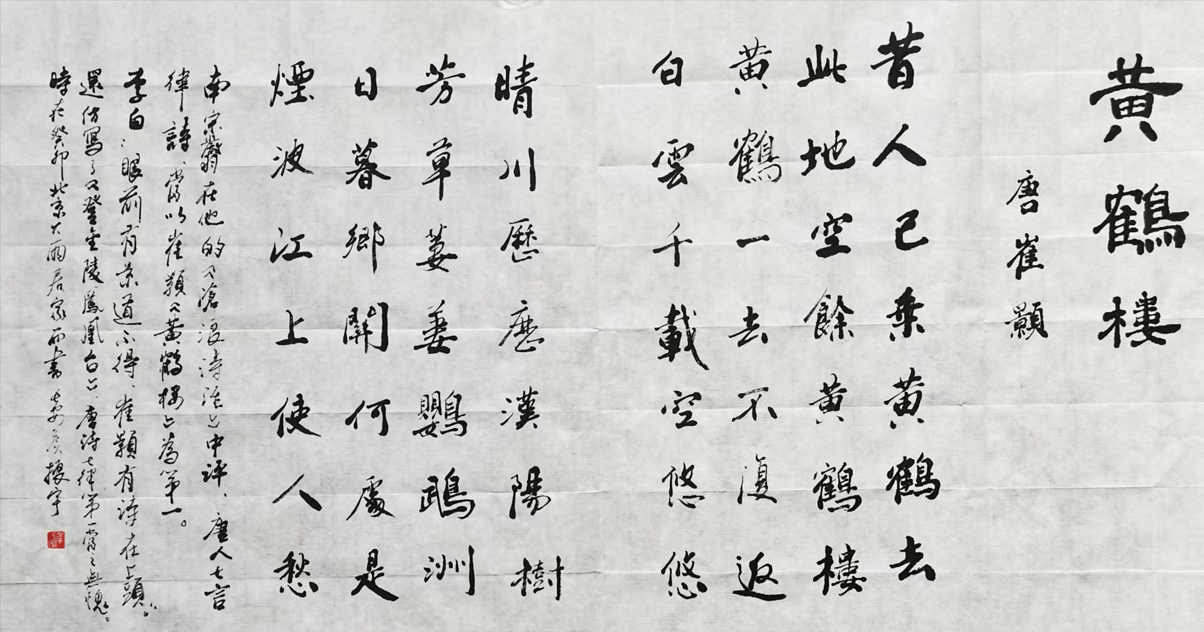 黄鶴樓
唐崔顥
昔人已乗黄鶴去
此地空餘黄鶴樓
黄鶴一去不復返
白雲千載空悠悠
晴川歷歷漢陽樹
芳草萋萋鸚鵡洲
日暮鄉關何處是
煙波江上使人愁
南宋嚴羽在他的《滄浪詩話》中評、唐人七言
律詩、當以崔顥《黄鶴樓》為第一。
李白:“眼前有景道不得、崔顥有詩在上頭”
還仿寫了《登金陵鳳凰台》、唐詩七律第一當之無愧。
時在癸卯北京大雨居家而書